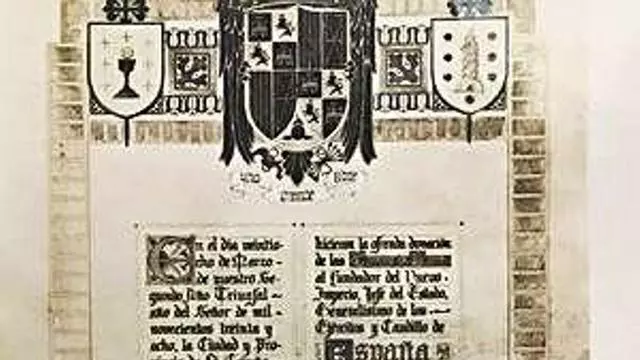 En el dia veintio~
cho de Marzo
de nuestro Se-
gundo Año Triunfal ~
año del Señor de mil ~
novecientos treinta y
ocho, la Ciudad y Pro-
hicieron la ofrenda donación
de las
al fundador del Nuevo
Imperio, Jefe del Estado,
Generalísimo de los
Ejércitos y Caudillo de
España